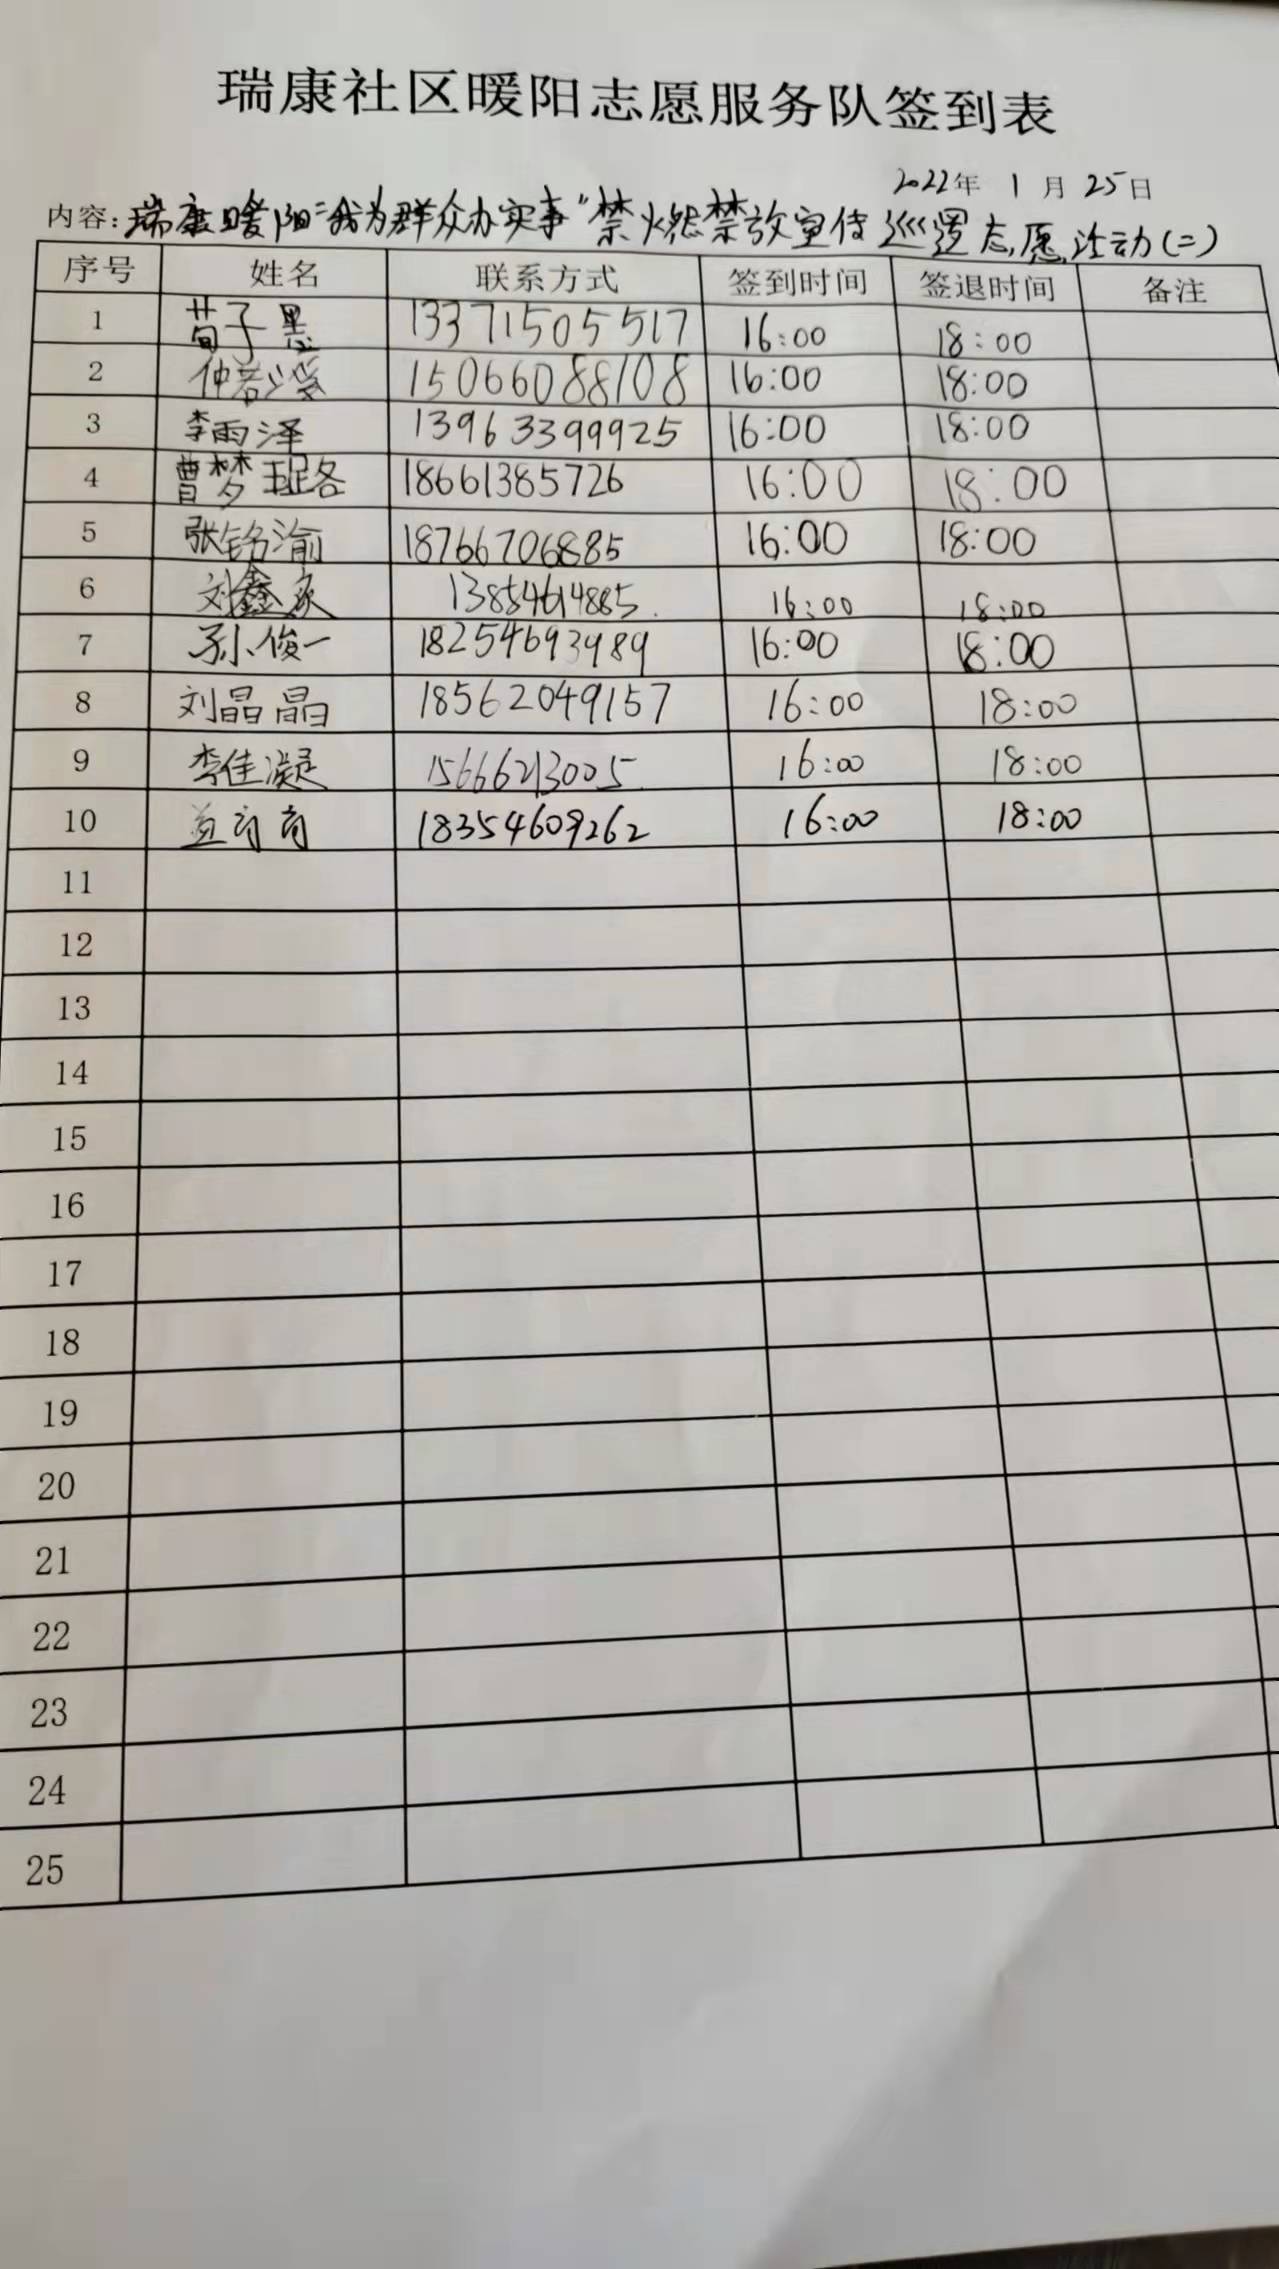 瑞康社区暖阳志愿服务队签到表
2022年 1 月 25日
内容：瑞康暖阳“我为群众办实事”禁燃禁放宣传巡逻志愿活动（二）
序号 姓名 联系方式 签到时间 签退时间 备注
1 荀子墨 13371505517 16:00 18:00
2 仲若 15066088108 16:00 18:00
3 李雨泽 13963399925 16:00 18:00
4 曹梦 18661385726 16:00 18:00
5 张铭渝 18766706885 16:00 18:00
6 刘鑫 13854614885 16:00 18:00
7 孙俊一 18254693989 16:00 18:00
8 刘晶晶 18562049157 16:00 18:00
9 李佳凝 15666213005 16:00 18:00
10 18354609262 16:00 18:00
11
12
13
14
15
16
17
18
19
20
21
22
23
24
25